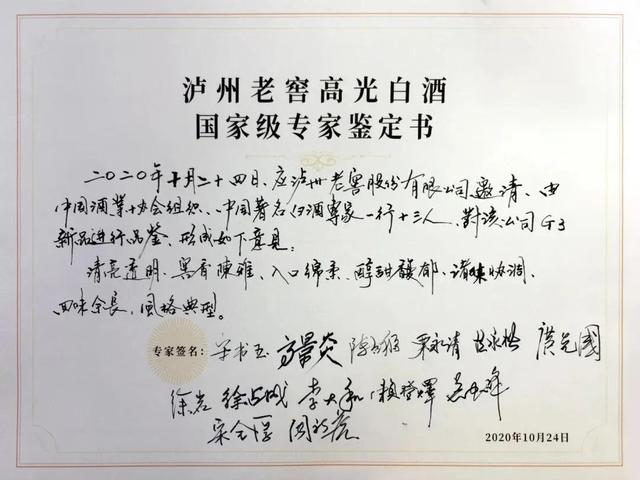 泸州老窖高光白酒
国家级专家鉴定书
二〇二〇年十月二十四日、应泸州老窖股份有限公司邀请、由
中国酒业协会组织、中国著名白酒专家一行十三人、對该公司G3
新品进行品鉴、形成如下意见：
清亮透明、窖香陳雅、入口绵柔、醇甜馥郁、诸味协调、
回味余長、風格典型。
专家签名： 高景炎
徐岩 徐占成 李大和 賴登燡
2020年10月24日